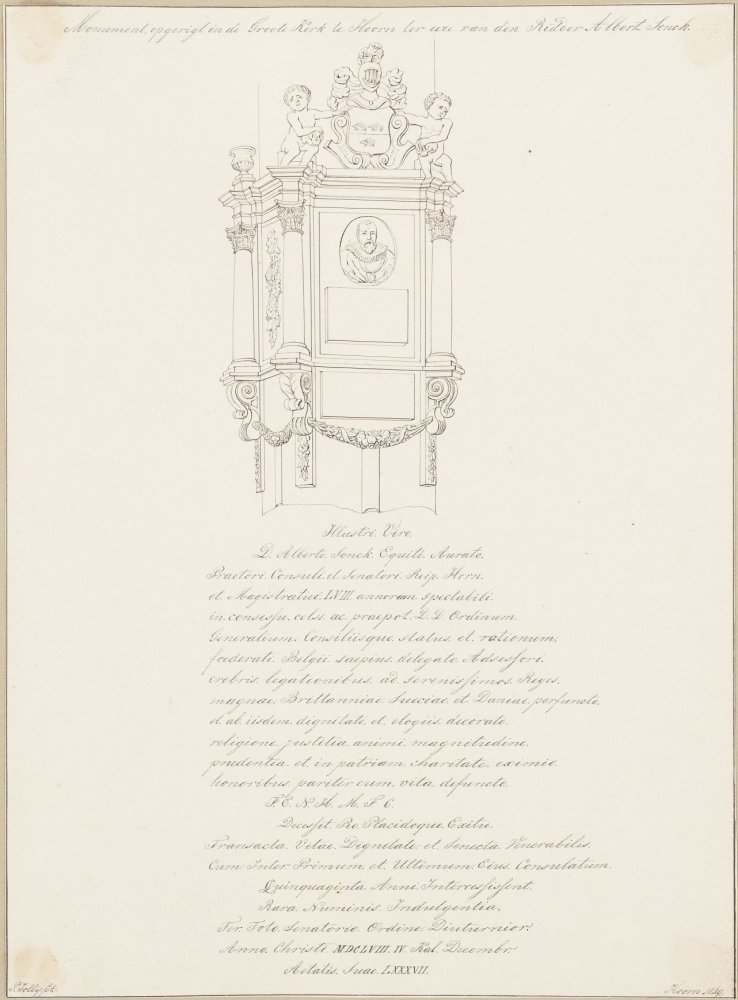 Monument, opgerigt in de Groote Kerk te Hoorn ter eere van den Ridder Albert Sonck.
Illustri. Viro.
D. Alberto. Sonck. Equiti. Aurato.
Praetori. Consuli. et. Senatori. Reip. Horn.
et. Magistratue. LVIII. annorum. spectabili.
in. consessu. celss. ac. praepot. D. D. Ordinum.
Generalium. Consiliisque. status. et. rationum.
foederati. Belgii. saepius. delegato. Adsessori.
crebris. legationibus. ad. serenissimos. Reges.
magnae. Brittanniae. Sueciae. et. Daniae. perfuncto.
et. ab. iisdem. dignitate. et. elogiis. decorato.
religione. justitia. animi. magnetudine.
prudentia. et. in. patriam. charitate. eximio.
honoribus. pariter. cum. vita. defuncto.
F. E. N. H. M. F. C.
Decessit. Pio. Placidoque. Exitu.
Transacta. Vitae. Dignitate. et. Senecta. Venerabilis.
Cum. Inter. Primum. et. Ultimum. Eius. Consulatum.
Quinquaginta. Anni. Intercessissent.
Rara. Numinis. Indulgentia.
Ter. Toto. Senatorio. Ordine. Diuturnior.
Anno. Christi. MDCLVIII. IV. Kal. Decembr.
Aetatis. Suae. LXXXVII.
Hoorn. 1829.